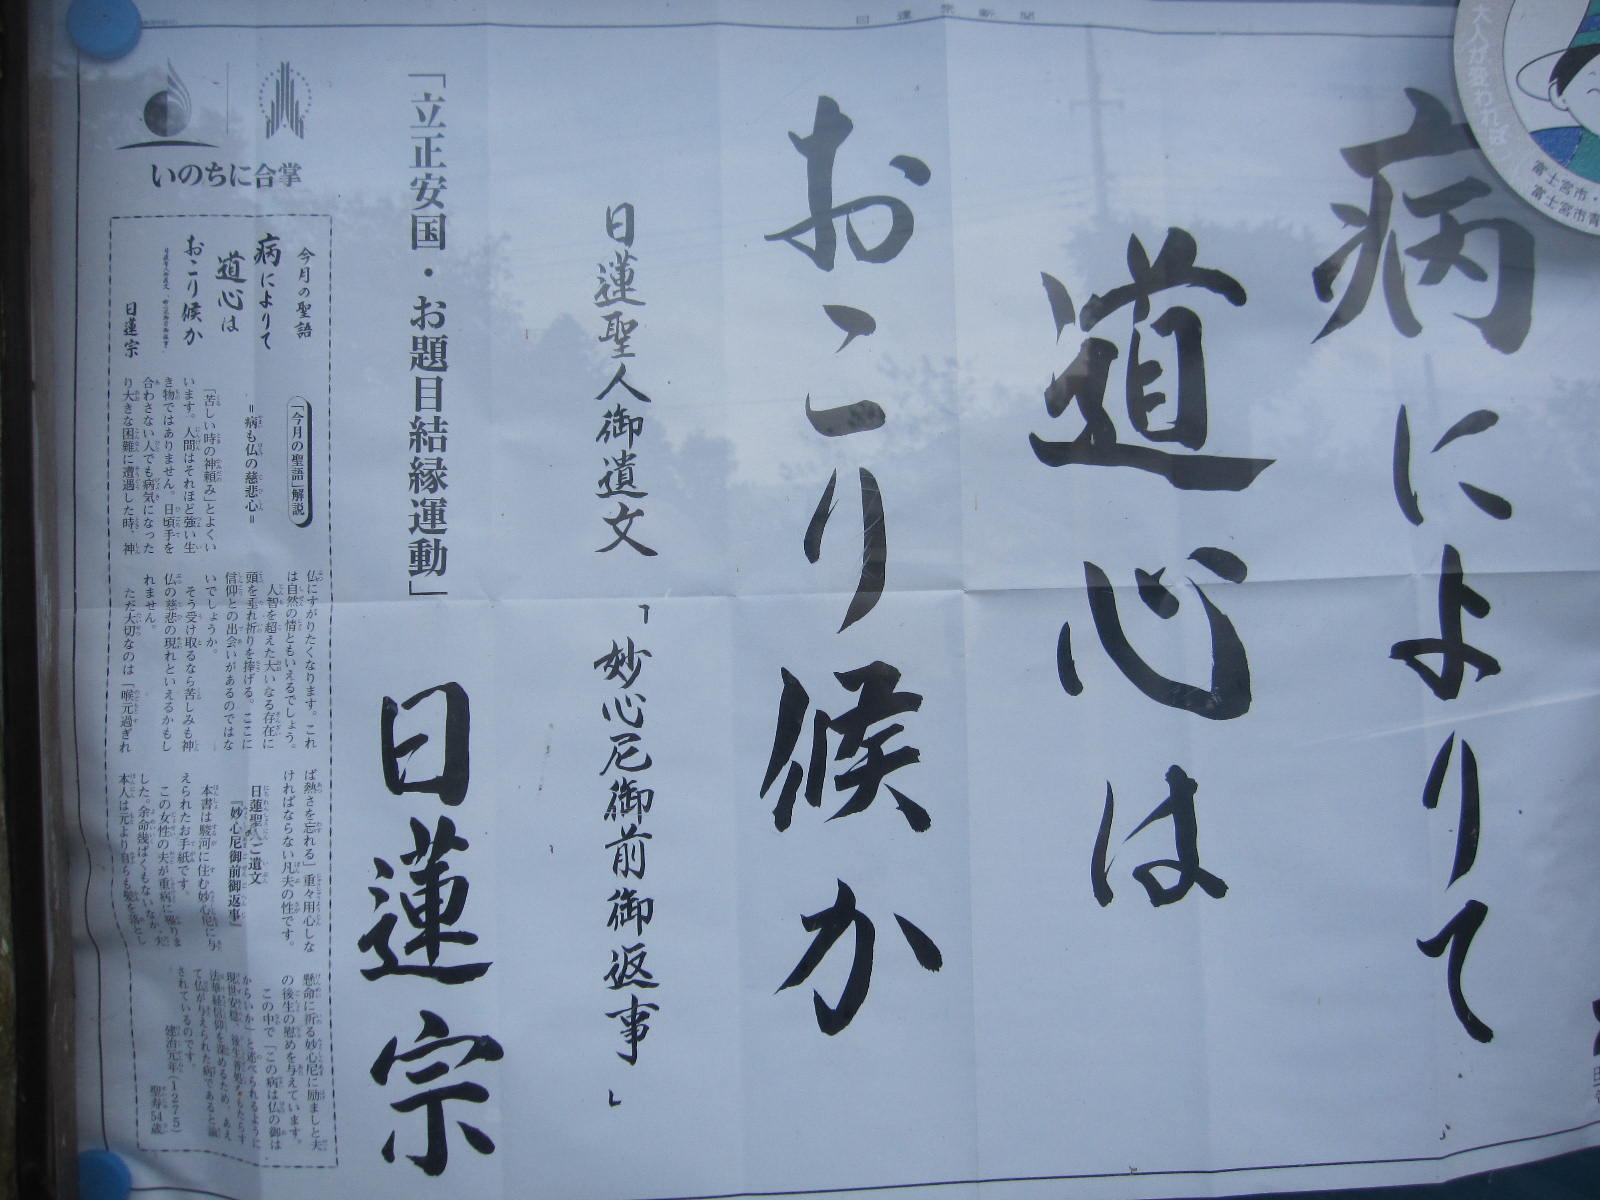 日蓮宗新聞
大人が変われば
富士宮市・
富士宮市青
病によりて
道心は
おこり候か
日蓮聖人御遺文「妙心尼御前御返事」
「立正安国・お題目結縁運動」
日蓮宗
いのちに合掌
今月の聖語
病によりて
道心は
おこり候か
日蓮宗
「今月の聖語」解説
=病も仏の慈悲心=
「苦しい時の神頼み」とよくい
います。人間はそれほど強い生
き物ではありません。日頃手を
合わさない人でも病気になった
り大きな困難に遭遇した時、神
仏にすがりたくなります。これ
は自然の情ともいえるでしょう。
人智を超えた大いなる存在に
頭を垂れ祈りを捧げる。ここに
信仰との出会いがあるのではな
いでしょうか。
そう受け取るなら苦しみも神
仏の慈悲の現れといえるかもし
れません。
ただ大切なのは「喉元過ぎれ
ば熱さを忘れる」重々用心しな
ければならない凡夫の性です。
日蓮聖人ご遺文
『妙心尼御前御返事』
本書は駿河に住む妙心尼に与
えられたお手紙です。
この女性の夫が重病に罹りま
した。余命幾ばくもないなか、夫
本人は元より自らも髪を落とし
懸命に祈る妙心尼に励ましと夫
の後生の慰めを与えています。
この中で「この病は仏の御は
からいか」と述べられるように
現世安穏、後生善処をもたらす
法華経信仰を深めるため、あえ
て仏が与えられた病であると論
されているのです。
建治元年(1275)
聖寿54歳